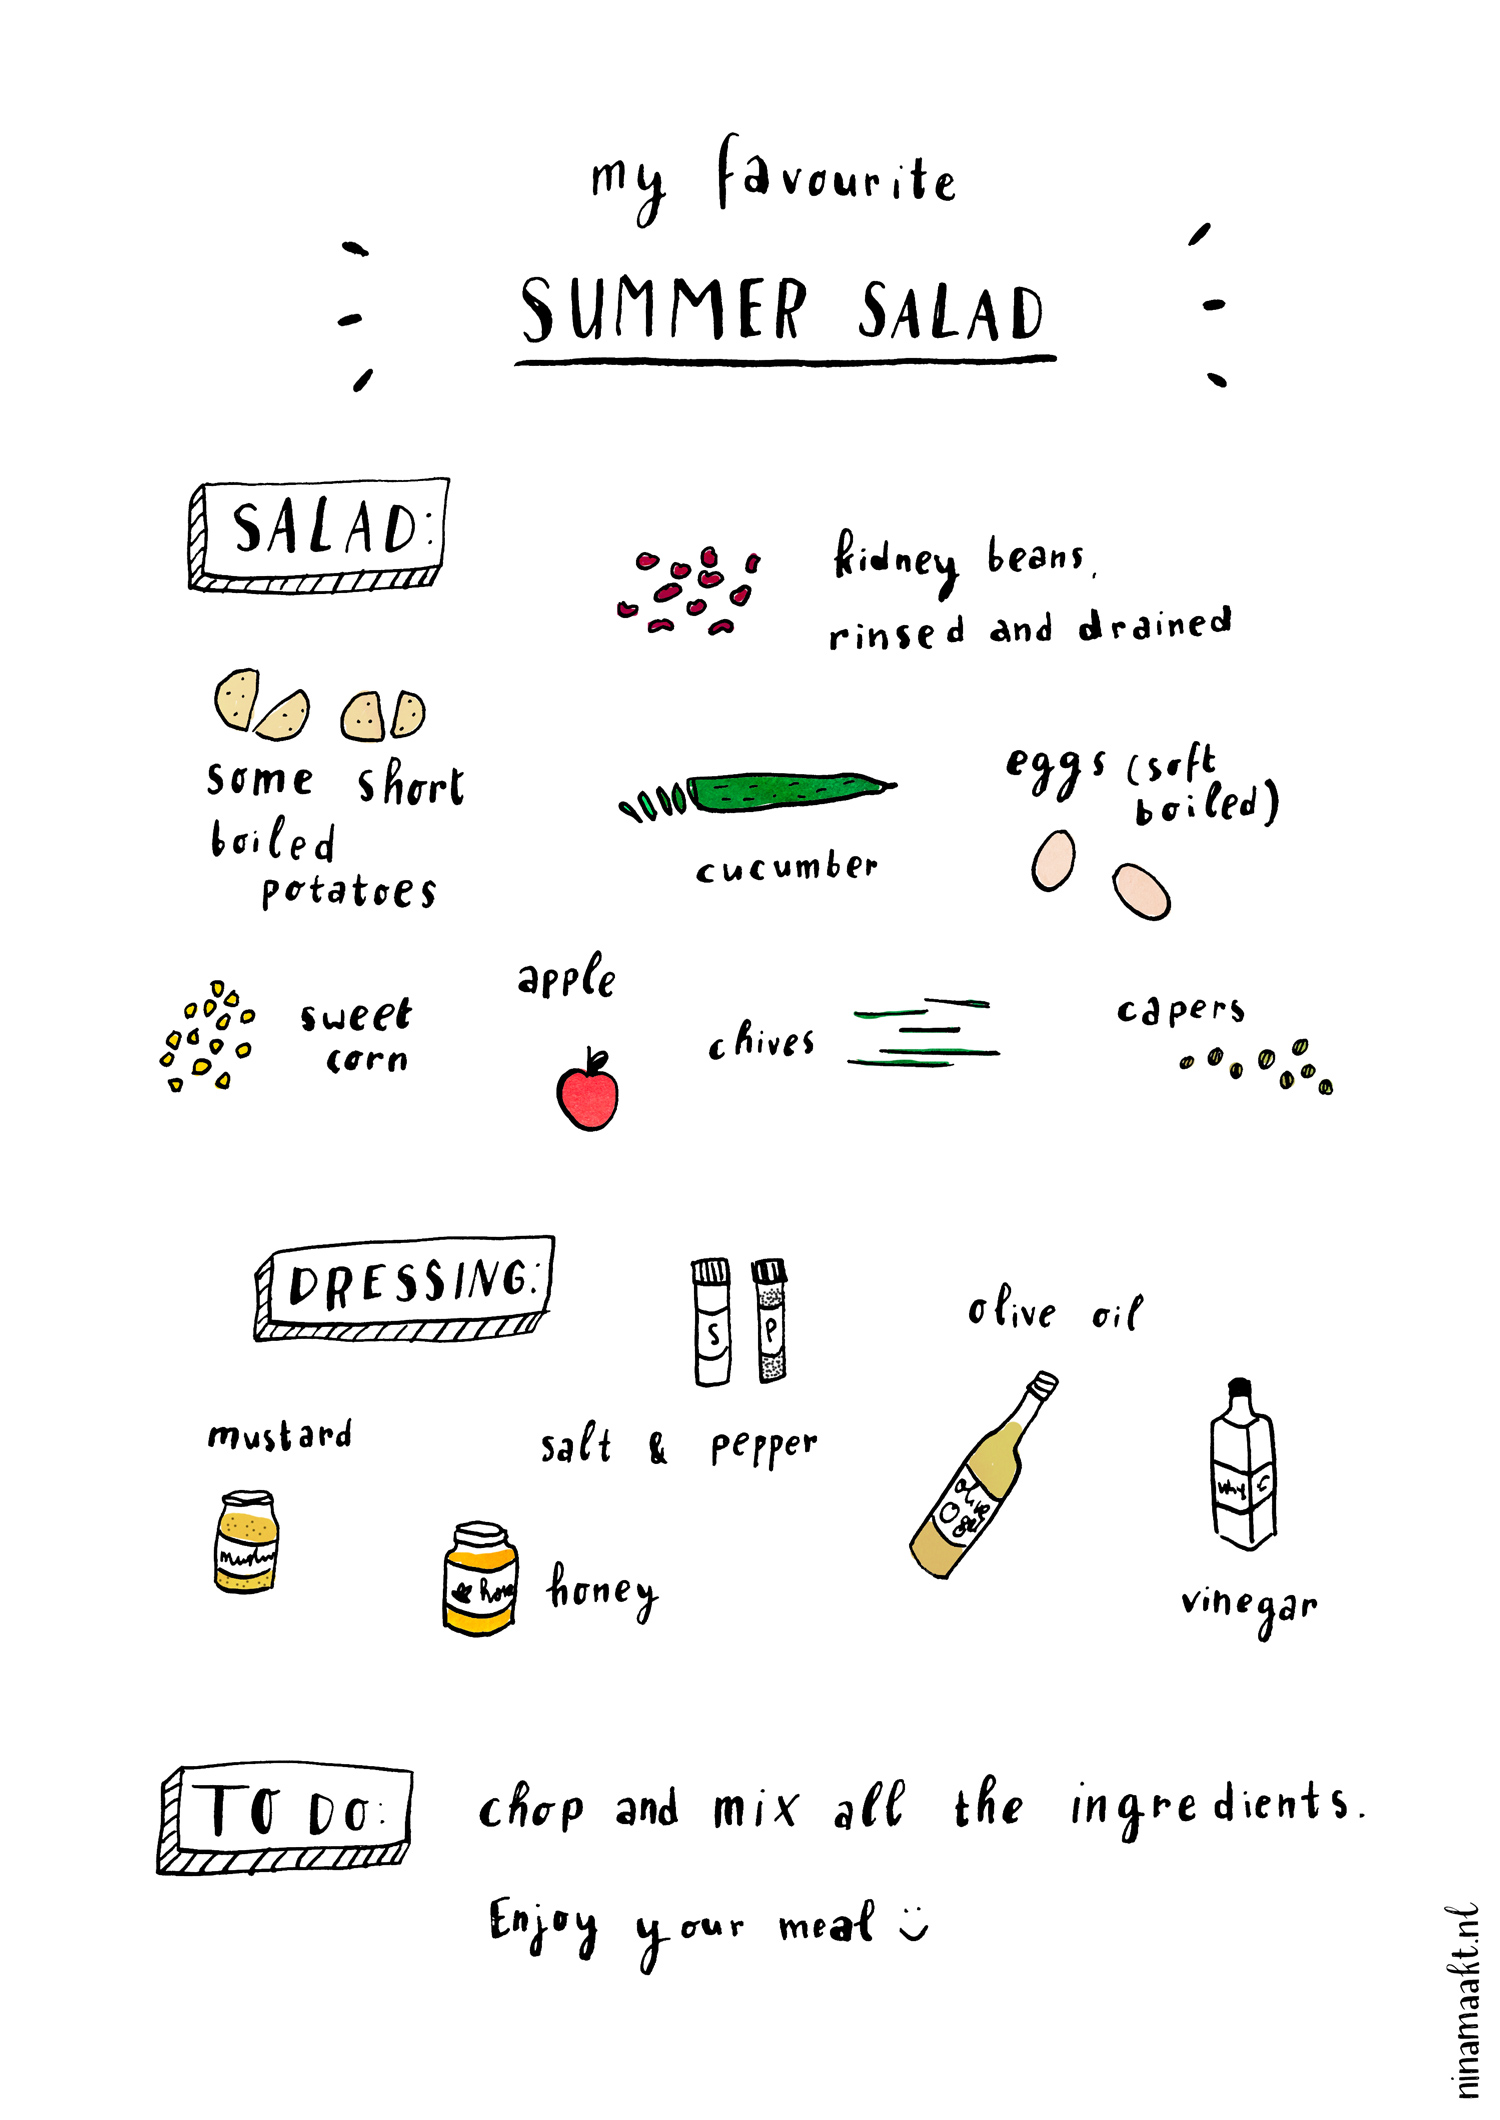 my favourite
SUMMER SALAD
SALAD:
kidney beans,
rinsed and drained
some short
boiled
potatoes
cucumber
eggs (soft
boiled)
sweet
corn
apple
chives
capers
DRESSING:
S P
olive oil
mustard
salt & pepper
olive
oil
honey
vinegar
TO DO:
chop and mix all the ingredients.
Enjoy your meal
ninamaakt.nl